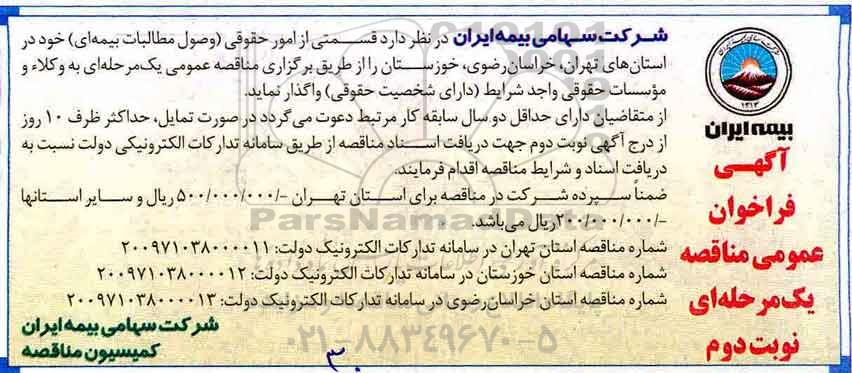 شرکت سهامی بیمه ایران در نظر دارد قسمتی از امور حقوقی (وصول مطالبات بیمه‌ای) خود در
استان‌های تهران، خراسان‌رضوی، خوزستان را از طریق برگزاری مناقصه عمومی یک‌مرحله‌ای به وکلاء و
مؤسسات حقوقی واجد شرایط (دارای شخصیت حقوقی) واگذار نماید.
از متقاضیان دارای حداقل دو سال سابقه کار مرتبط دعوت می‌گردد در صورت تمایل، حداکثر ظرف ۱۰ روز
از درج آگهی نوبت دوم جهت دریافت اسناد مناقصه از طریق سامانه تدارکات الکترونیکی دولت نسبت به
دریافت اسناد و شرایط مناقصه اقدام فرمایند.
ضمناً سپرده شرکت در مناقصه برای استان تهران -/۵۰۰/۰۰۰/۰۰۰ ریال و سایر استانها
-/۲۰۰/۰۰۰/۰۰۰ریال می‌باشد.
شماره مناقصه استان تهران در سامانه تدارکات الکترونیک دولت: ۲۰۰۹۷۱۰۳۸۰۰۰۰۱۱
شماره مناقصه استان خوزستان در سامانه تدارکات الکترونیک دولت: ۲۰۰۹۷۱۰۳۸۰۰۰۰۱۲
شماره مناقصه استان خراسان‌رضوی در سامانه تدارکات الکترونیک دولت: ۲۰۰۹۷۱۰۳۸۰۰۰۰۱۳
شرکت سهامی بیمه ایران
کمیسیون مناقصه
۱۳۱۴
بیمه ایران
آگهی
فراخوان
عمومی مناقصه
یک‌مرحله‌ای
نوبت دوم
ParsNamadData
۰۲۱-۸۸۳۴۹۶۷۰-۵
۳۰